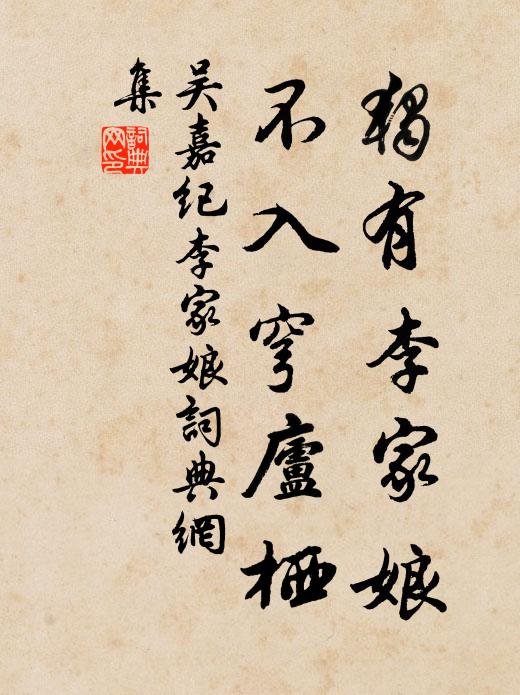 獨有李家娘
不入穹廬栖
吴嘉纪李家娘詞典網
集
詞典網印